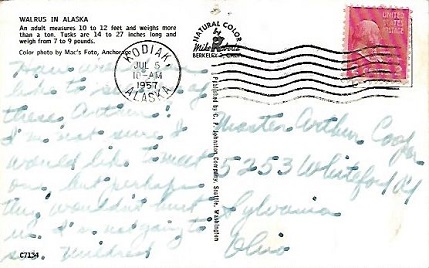 WALRUS IN ALASKA
An adult measures 10 to 12 feet and weighs more
than a ton. Tusks are 14 to 27 inches long and
weigh from 7 to 9 pounds.
Color photo by Mac's Foto, Anchorage
NATURAL COLOR
Mike Roberts
BERKELEY 2, CALIF.
KODIAK
JUL 5
10-AM
1957
ALASKA
UNITED STATES
POSTAGE
How would you
like to see one of
these Artie?
I'm not sure I
would like to meet
one, but perhaps
they wouldn't hurt
us. I'm not going to
see. Mildred
C7134
Published by C. P. Johnston Company, Seattle, Washington
Master Arthur
5253 Whiteford Rd
Sylvania
Ohio